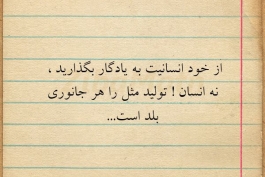 از خود انسانیت به یادگار بگذارید ،
نه انسان ! تولید مثل را هر جانوری
بلد است...